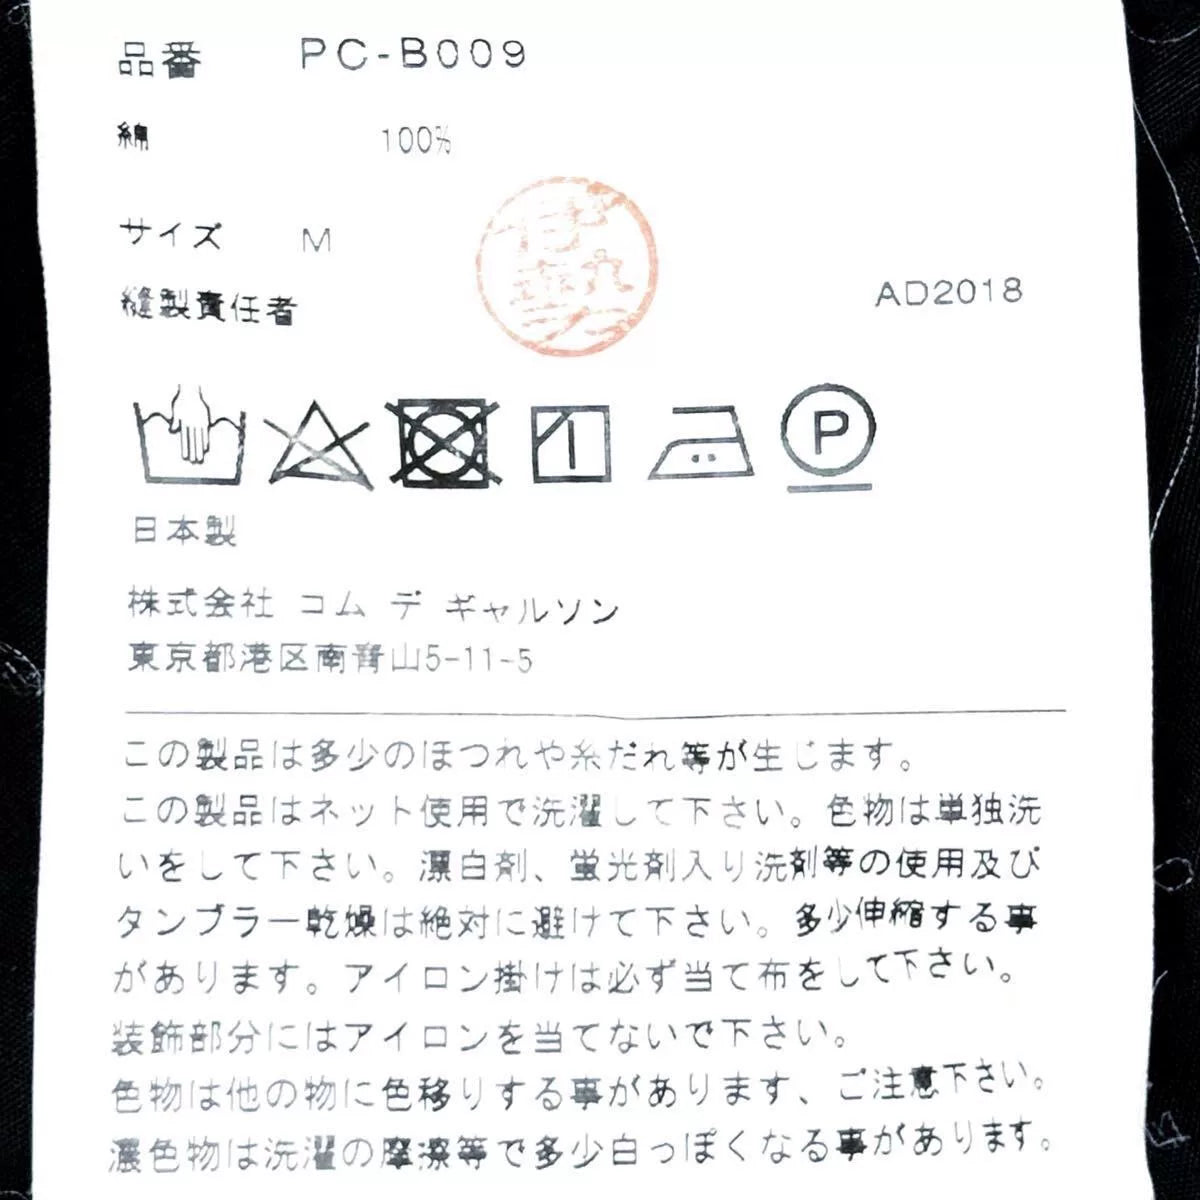 品番 PC-B009
綿 100%
サイズ M
縫製責任者
AD2018
P
日本製
株式会社 コム デ ギャルソン
東京都港区南青山5-11-5
この製品は多少のほつれや糸だれ等が生じます。
この製品はネット使用で洗濯して下さい。色物は単独洗
いをして下さい。漂白剤、蛍光剤入り洗剤等の使用及び
タンブラー乾燥は絶対に避けて下さい。多少伸縮する事
があります。アイロン掛けは必ず当て布をして下さい。
装飾部分にはアイロンを当てないで下さい。
色物は他の物に色移りする事があります、ご注意下さい。
濃色物は洗濯の摩擦等で多少白っぽくなる事があります。